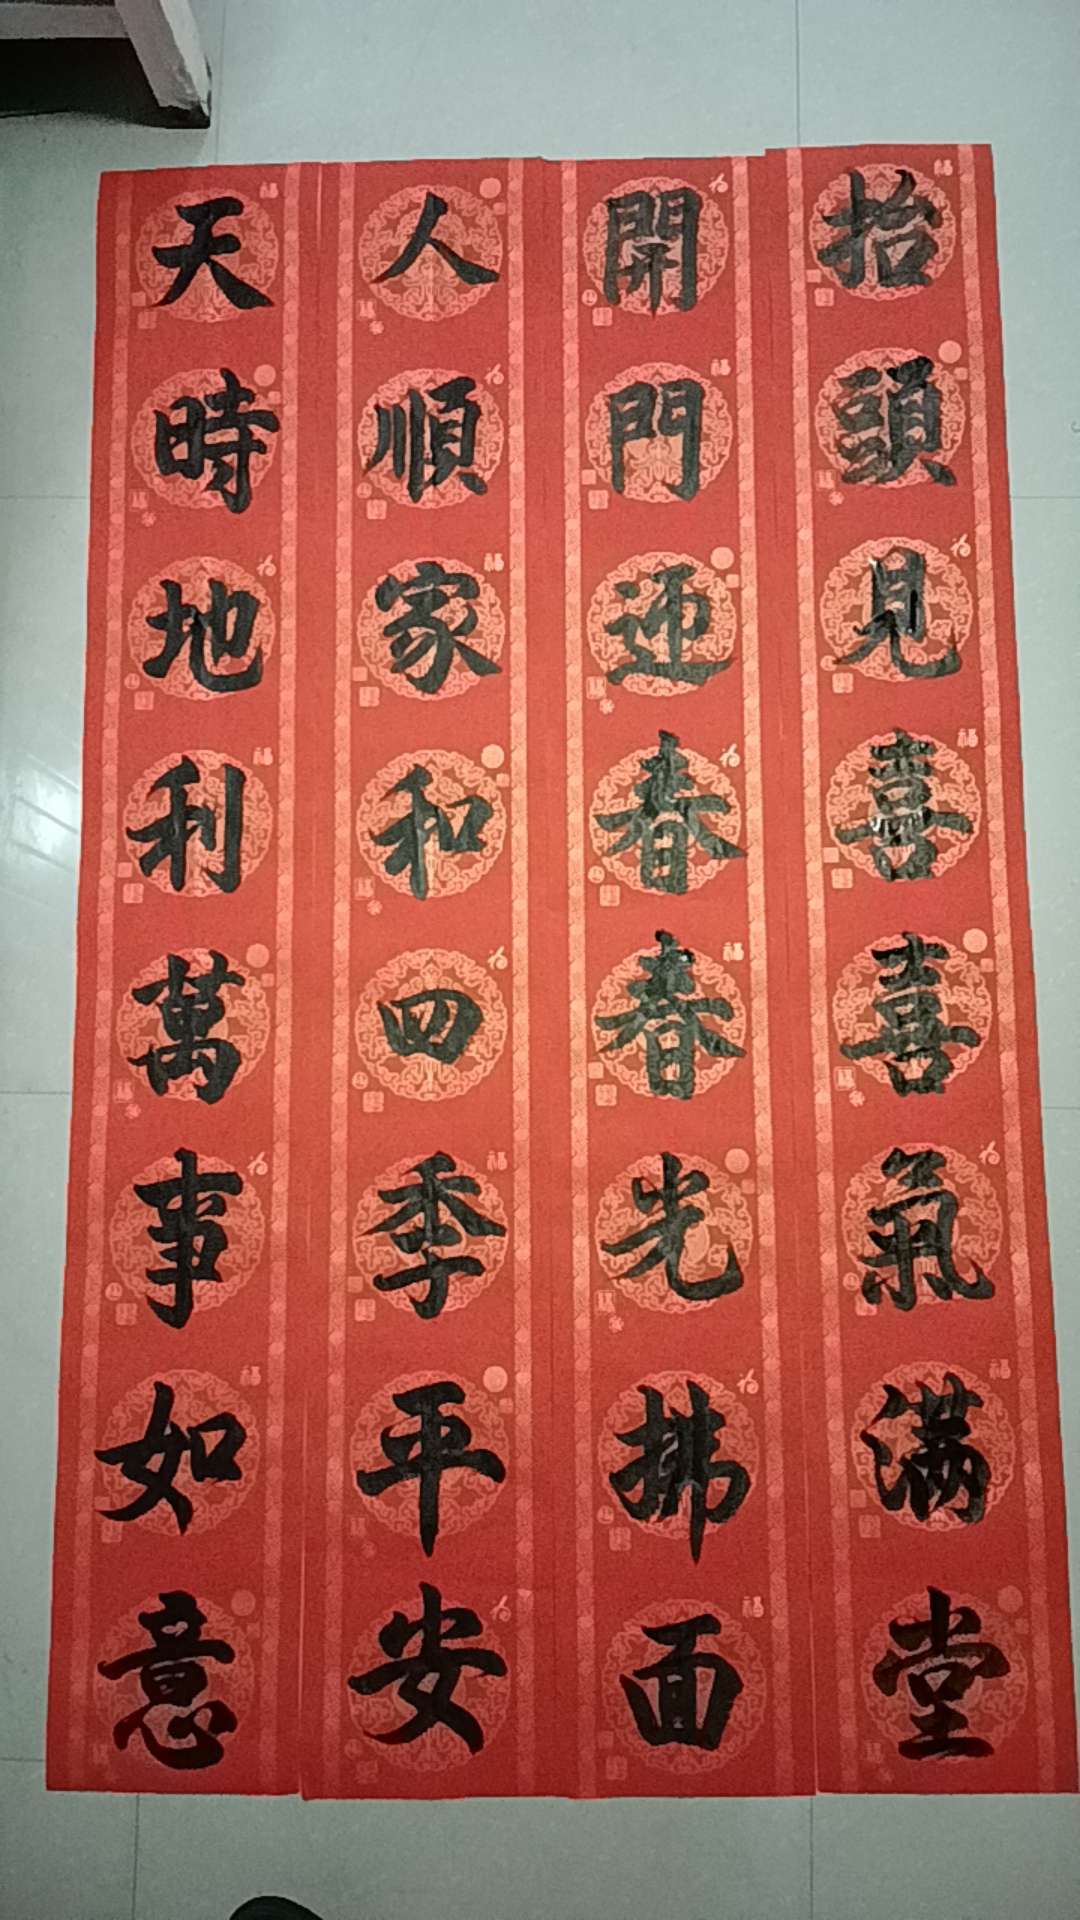 天時地利萬事如意
人順家和四季平安
開門迎春春光拂面
抬頭見喜喜氣滿堂